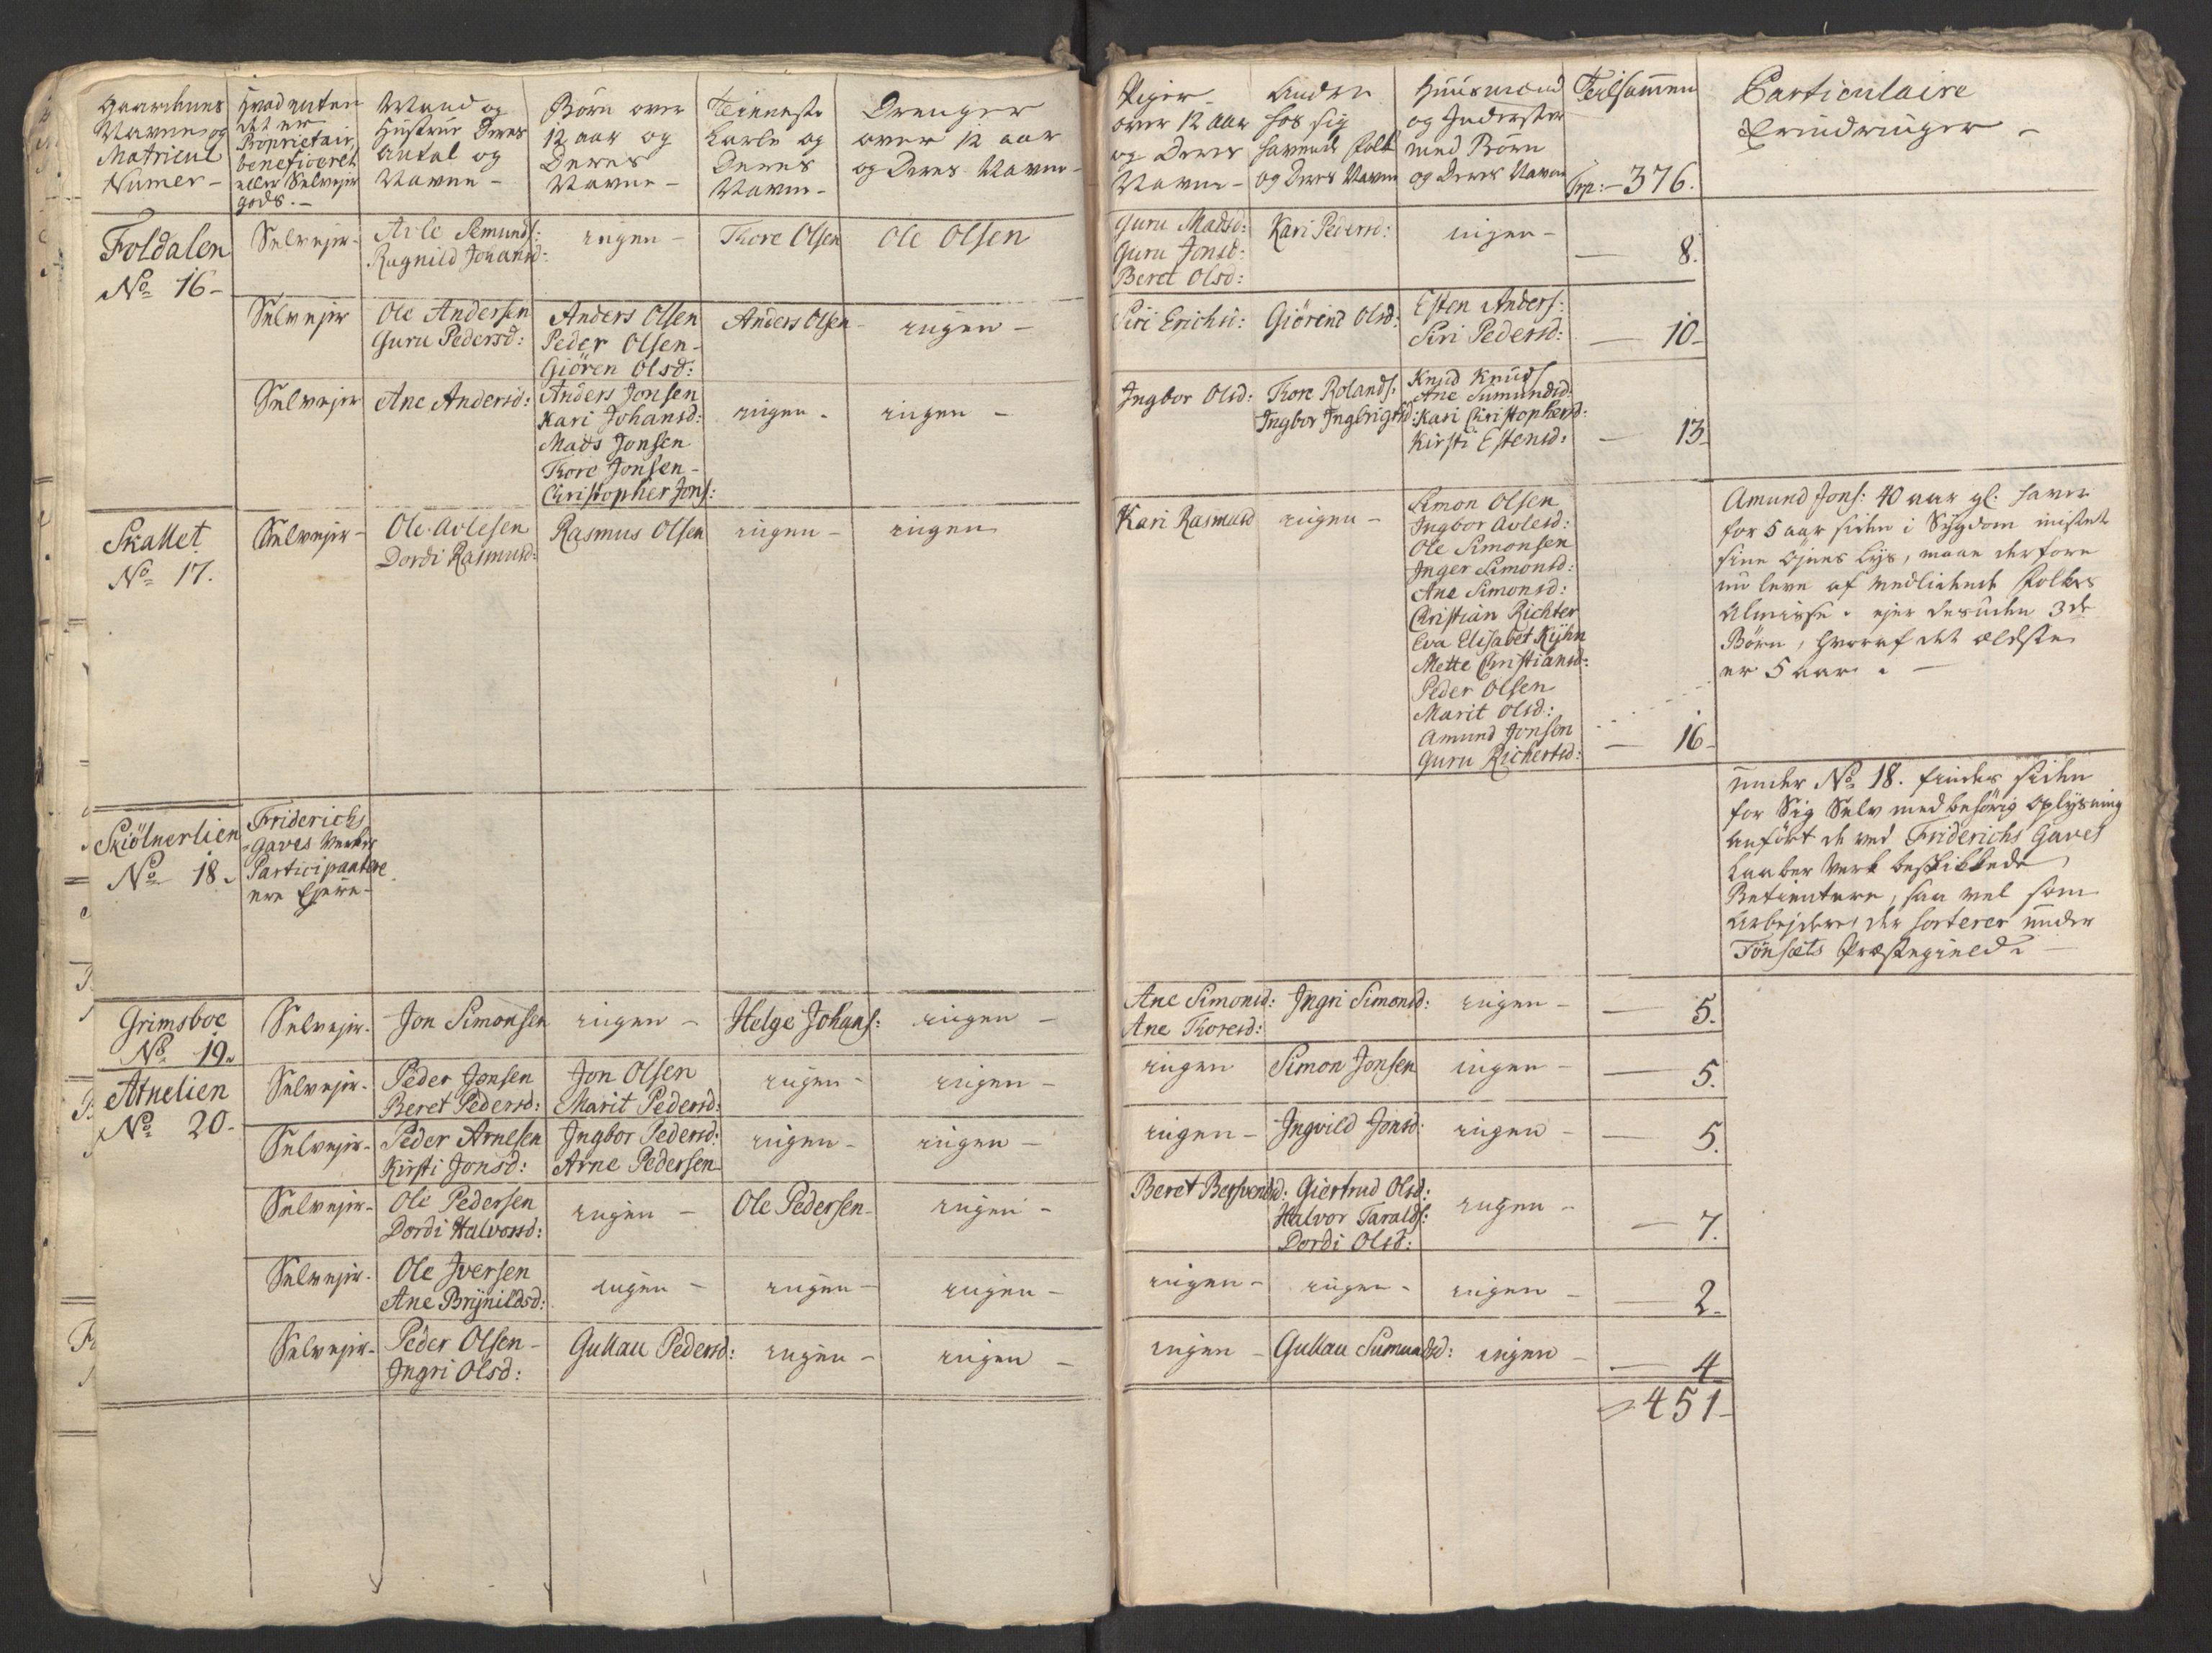 Gaardenes
Navne og
Matricul
Numer -
Hvad enten
det er
Proprietair,
beneficeret
eller Selvejer
gods. -
Mand og
Hustrue Deres
Antal og
Navne -
Børn over
12 aar og
Deres
Navne -
Tieneste
Karle og
Deres
Navne -
Drenger
over 12 aar
og Deres Navne -
Piger
over 12 aar
og Deres
Navne -
Anden
hos sig
havende folk
og Deres Navne
Huusmænd
og Inderster
med Børn
og Deres Navne
Tilsammen
Trp: - 376.
Particulaire
Erindringer -
Foldalen
No 16 -
Selvejer -
Arle Semunds:
Ragnild Johansd:
ingen -
Thore Olsen
Ole Olsen
Guru Madsd:
Guru Jonsd:
Beret Olsd:
Kari Pedersd:
ingen -
— 8.
Selvejer
Ole Andersen
Guru Pedersd:
Anders Olsen
Peder Olsen -
Giören Olsd:
Anders Olsen -
ingen -
Siri Erichsd:
Giörend Olsd:
Esten Anders:
Siri Pedersd:
— 10 -
Selvejer
Ane Andersd:
Anders Jonsen
Kari Johansd:
Mads Jonsen
Thore Jonsen -
Christopher Jons:
ingen -
ingen -
Ingbor Olsd:
Thore Rolands:
Ingbor Ingbrigtsd:
Knud Knuds:
Ane Sumundsd:
Kari Christophersd:
Kirsti Estensd:
— 13 -
Skallet
No 17.
Selvejer -
Ole Avlesen
Dordi Rasmusd:
Rasmus Olsen
ingen -
ingen
Kari Rasmusd
ingen -
Simon Olsen
Ingbor Avlesd:
Ole Simonsen
Inger Simonsd:
Ane Simonsd:
Christian Richter
Eva Elisabet Kyhn
Mette Christiansd:
Peder Olsen
Marit Olsd:
Amund Jonsen
Guru Richertsd:
— 16 -
Amund Jons: 40 aar gl. haver
for 5 aar siden i Sygdom mistet
sine Øjnes Lys, maae derfore
nu leve af medlidende Folkes
Almisse. ejer desuden 3de
Børn, hvoraf det ældste
er 5 aar. -
Skiölnerlien
No 18.
Friderichs
Gaves Verkes
Participantere
ere Ejere -
under No 18. findes siden
for Sig Selv med behörig Oplysning
anfört de ved Friderichs Gaves
Kaaber Verk beskikkede
Betientere, saa vel som
Arbejdere, der sorterer under
Tönsæts Præstegield. -
Grimsboe
No 19.
Selvejer -
Jon Simonsen
ingen -
Helge Johans:
ingen -
Ane Simonsd:
Ane Thoresd:
Ingri Simonsd:
ingen -
— 5.
Atnelien
No 20 -
Selvejer -
Peder Jonsen
Beret Pedersd:
Jon Olsen
Marit Pedersd:
ingen -
ingen -
ingen
Simon Jonsen
ingen -
— 5.
Selvejer -
Peder Arnesen
Kirsti Jonsd:
Ingbor Pedersd:
Arne Pedersen
ingen -
ingen -
ingen -
Ingvild Jonsd:
ingen -
— 5.
Selvejer -
Ole Pedersen
Dordi Halvorsd:
ingen -
Ole Pedersen -
ingen -
Beret Bersvendsd:
Giertrud Olsd:
Halvor Taralds:
Dordi Olsd:
ingen -
— 7.
Selvejer -
Ole Iversen
Ane Brynildsd:
ingen -
ingen -
ingen -
ingen -
ingen -
ingen -
— 2 -
Selvejer -
Peder Olsen -
Ingri Olsd:
Gullau Pedersd:
ingen -
ingen -
ingen -
Gullau Sumundsd:
ingen -
— 4
= 451 -